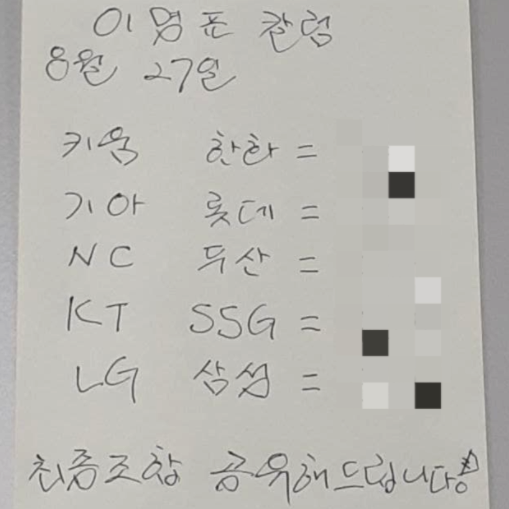 이명표 칼럼
8월 27일
키움 한화 =
기아 롯데 =
NC 두산 =
KT SSG =
LG 삼성 =
최종조합 공유해드립니다